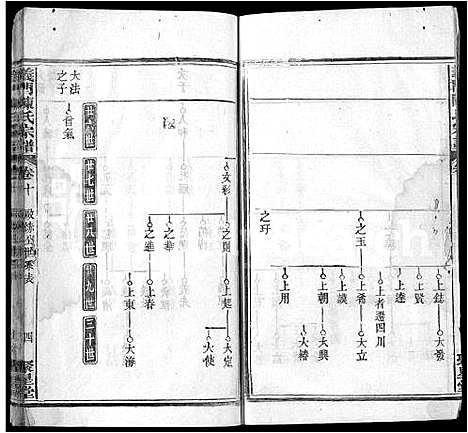 上鈜
大發
上賢
上達
上者遷四川
之玉
上喬
大立
上謨
上朝
大興
大椿
之玗
上用
文彩
上起
大定
大使
之華
之進
上春
上東
大海
廿六世
廿七世
廿八世
廿九世
三十世
大法
之子
義門陳氏宗譜
卷十
四
聚星堂